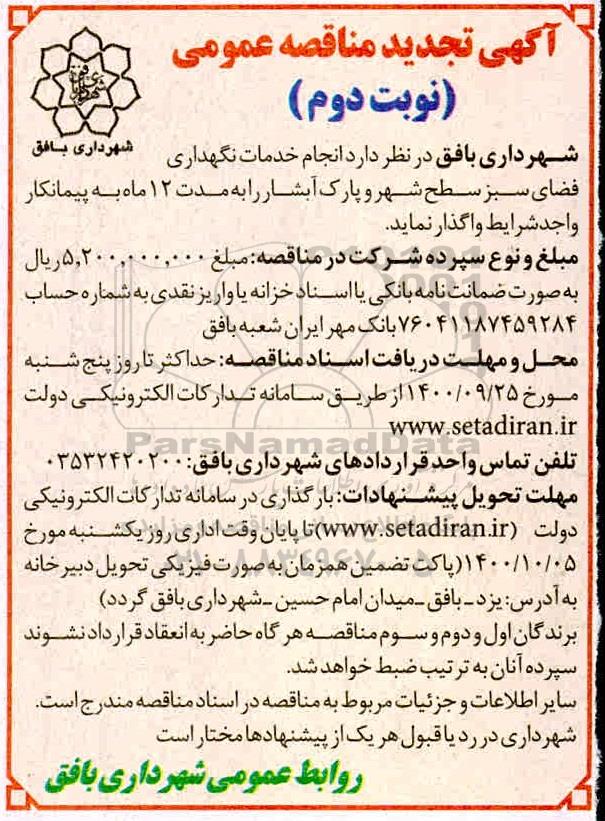 آگهی تجدید مناقصه عمومی
(نوبت دوم)
شهرداری بافق
شهرداری بافق در نظر دارد انجام خدمات نگهداری
فضای سبز سطح شهر و پارک آبشار را به مدت ۱۲ ماه به پیمانکار
واجد شرایط واگذار نماید.
مبلغ و نوع سپرده شرکت در مناقصه: مبلغ ۵,۲۰۰,۰۰۰,۰۰۰ ریال
به صورت ضمانت نامه بانکی یا اسناد خزانه یا واریز نقدی به شماره حساب
۷۶۰۴۱۱۸۷۴۵۹۲۸۴ بانک مهر ایران شعبه بافق
محل و مهلت دریافت اسناد مناقصه: حداکثر تا روز پنج شنبه
مورخ ۱۴۰۰/۰۹/۲۵ از طریق سامانه تدارکات الکترونیکی دولت
www.setadiran.ir
ParsNamadData
تلفن تماس واحد قراردادهای شهرداری بافق: ۰۳۵۳۲۴۲۰۲۰۰
مهلت تحویل پیشنهادات: بارگذاری در سامانه تدارکات الکترونیکی
دولت (www.setadiran.ir) تا پایان وقت اداری روز یکشنبه مورخ
۱۴۰۰/۱۰/۰۵ (پاکت تضمین همزمان به صورت فیزیکی تحویل دبیرخانه
به آدرس: یزد ـ بافق ـ میدان امام حسین ـ شهرداری بافق گردد)
برندگان اول و دوم و سوم مناقصه هر گاه حاضر به انعقاد قرارداد نشوند
سپرده آنان به ترتیب ضبط خواهد شد.
سایر اطلاعات و جزئیات مربوط به مناقصه در اسناد مناقصه مندرج است.
شهرداری در رد یا قبول هر یک از پیشنهادها مختار است
روابط عمومی شهرداری بافق